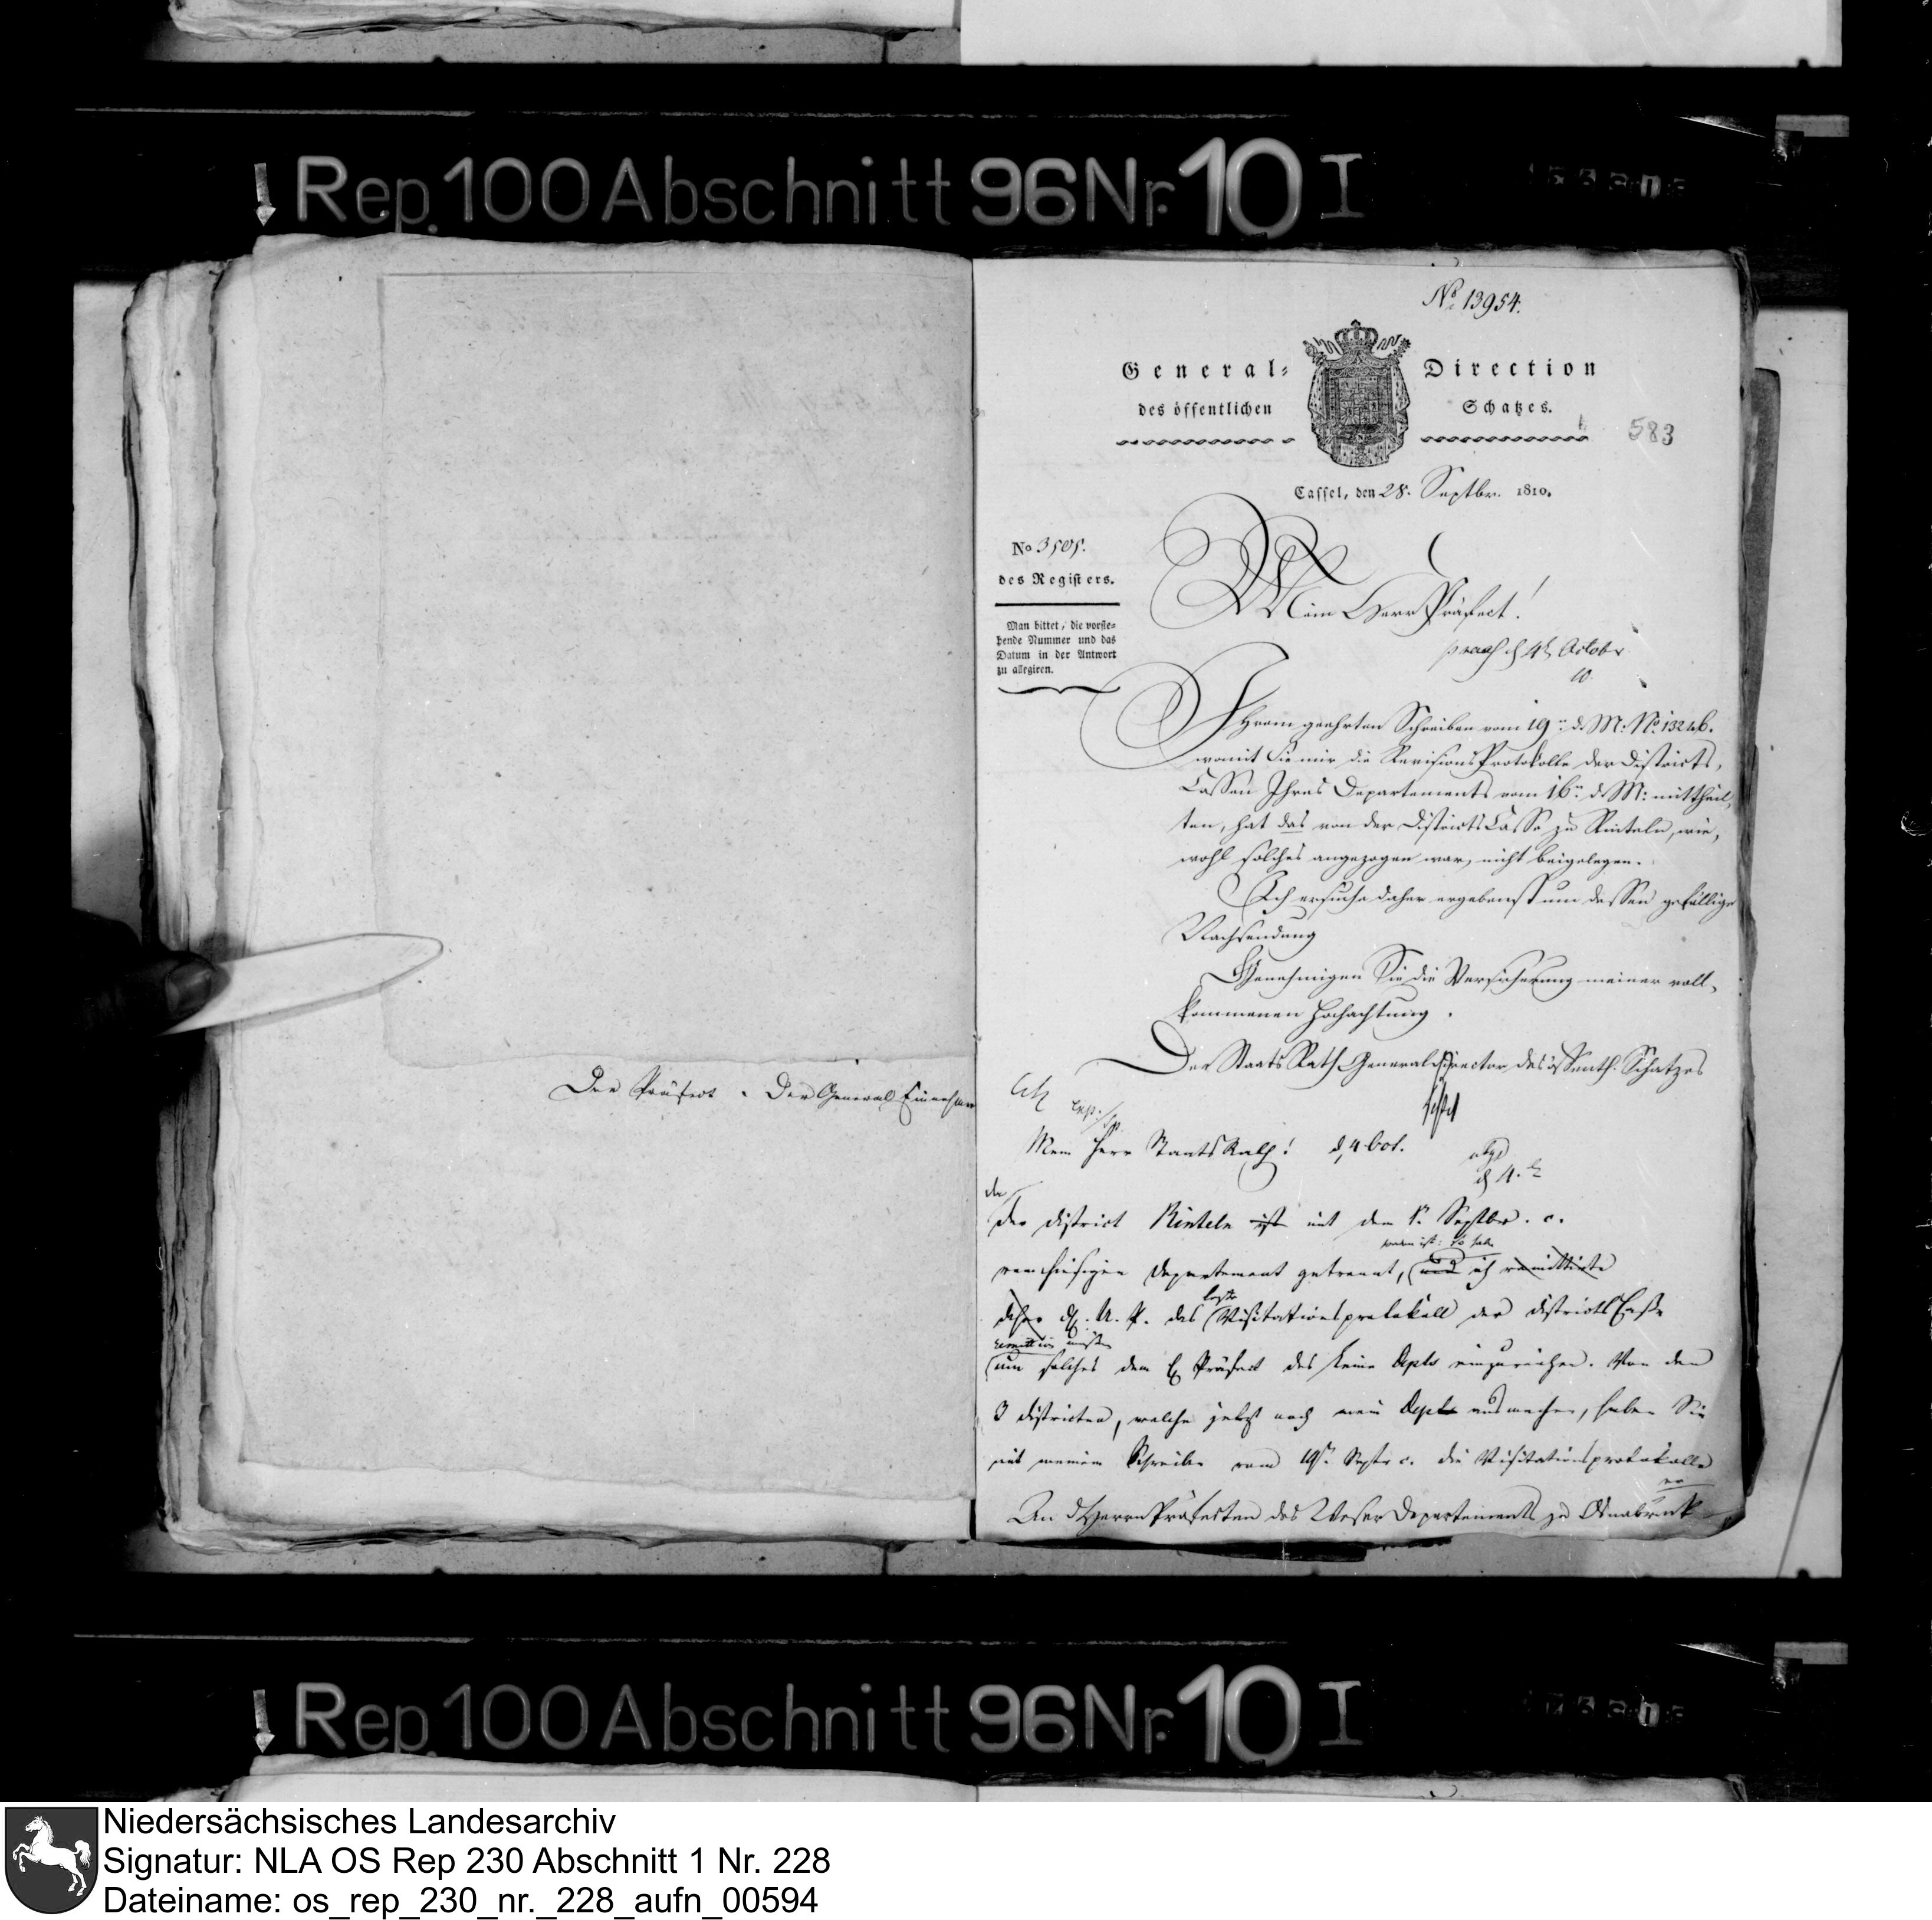 Rep. 100 Abschnitt 96 Nr. 10 I
Der Präfect. Der General Einnehmer
No 13954.
General= Direction
des öffentlichen Schatzes.
583
Cassel, den 28. Septbr. 1810.
No 3505.
des Registers.
Man bittet, die vorste=
hende Nummer und das
Datum in der Antwort
zu allegiren.
Mein Herr Präfect!
praes d 4t October
10.
Ihrem geehrten Schreiben vom 19n d. M: No 13246.
womit Sie mir die Revisions Protokolle der Districts,
Cassen Ihres Departements vom 16n d. M: mittheil,
ten, hat das von der Districts Casse zu Rinteln, wie,
wohl solches angezogen war, nicht beigelegen.
Ich ersuche daher ergebenst um dessen gefällige
Nachsendung
Genehmigen Sie die Versicherung meiner voll,
kommenen Hochachtung.
Der Staats Rath General Director des öffentl. Schatzes
Mein Herr Staats Rath! d 4 8br.
abgs
d 4.
da
der District Rinteln ist mit dem 1n Septbr. c.
worden ist: so habe
vom hiesigen Departement getrennt, und ich remittirte
letzte
daher das Visitationsprotokoll der Districts Casse
remittiren müssen
um solches dem H Präfect des Leine Depts einzureichen. Von den
3 Districten, welche jetzt noch mein Dept ausmachen, haben Sie
mit meinem Schreiben vom 19n Septr c. die Visitationsprotokolle
An d Herrn Präfecten des Weser Departements zu Osnabrück
Rep. 100 Abschnitt 96 Nr. 10 I
Niedersächsisches Landesarchiv
Signatur: NLA OS Rep 230 Abschnitt 1 Nr. 228
Dateiname: os_rep_230_nr._228_aufn_00594